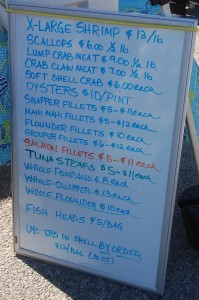 X-LARGE SHRIMP $12/lb.
SCALLOPS $6.00 ½ lb.
LUMP CRAB MEAT $9.00 ½ lb.
CRAB CLAW MEAT $7.00 ½ lb.
SOFT SHELL CRABS $6.00 each
OYSTERS $10/PINT
SNAPPER FILLETS $5-$11 each
MAHI MAHI FILLETS $5-$12 each
FLOUNDER FILLETS $10 each
GROUPER FILLETS $6-$12 each
SALMON FILLETS $5-$11 each
TUNA STEAKS $5-$11 each
WHOLE POMPANO $8 each
WHOLE SNAPPER $13 each
WHOLE FLOUNDER $10 each
FISH HEADS $5/BAG
OYSTERS IN SHELL BY ORDER
/BAG